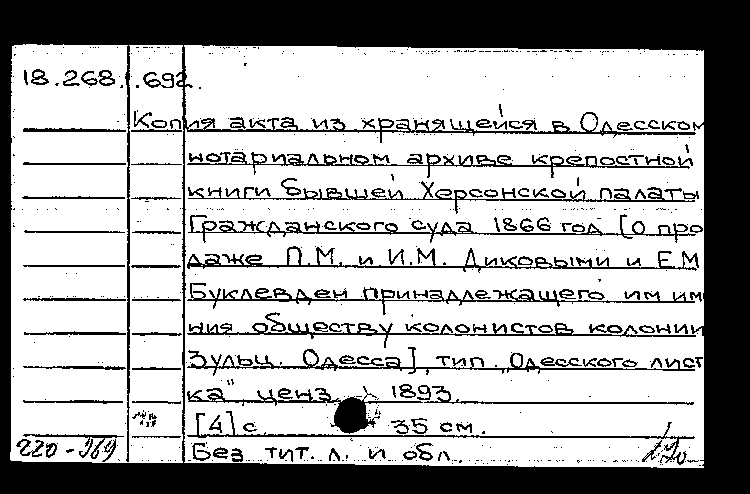 18.268.692.
Копия акта из хранящейся в Одесском
нотариальном архиве крепостной
книги бывшей Херсонской палаты
Гражданского суда 1866 год [о про
даже П.М. и И.М. Диковыми и Е.М
Буклевден принадлежащего им им
ния обществу колонистов колонии
Зульц. Одесса], тип. „Одесского лист
ка", ценз. 1893.
[4] с 35 см.
220-969 Без тит. л. и обл.